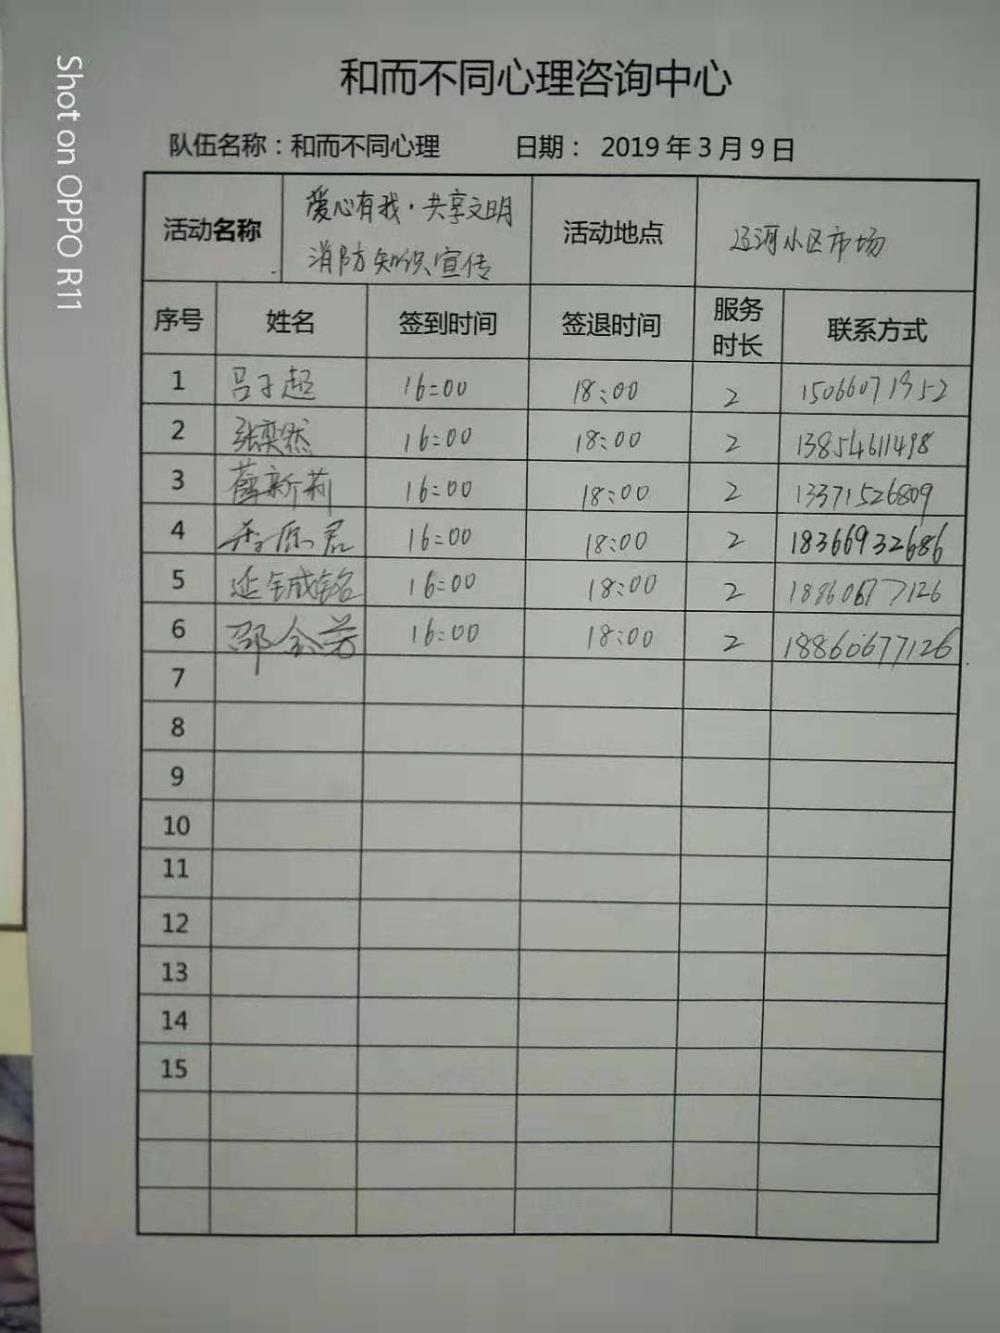 Shot on OPPO R11
和而不同心理咨询中心
队伍名称：和而不同心理 日期： 2019 年 3 月 9 日
活动名称 爱心有我·共享文明 消防知识宣传 活动地点 辽河小区市场
序号 姓名 签到时间 签退时间 服务时长 联系方式
1 吕子超 16:00 18:00 2 15066071952
2 张奕然 16:00 18:00 2 13854611498
3 薛新莉 16:00 18:00 2 13371526809
4 16:00 18:00 2 18366932686
5 延铖铭 16:00 18:00 2 18860677126
6 邵会芳 16:00 18:00 2 18860677126
7
8
9
10
11
12
13
14
15